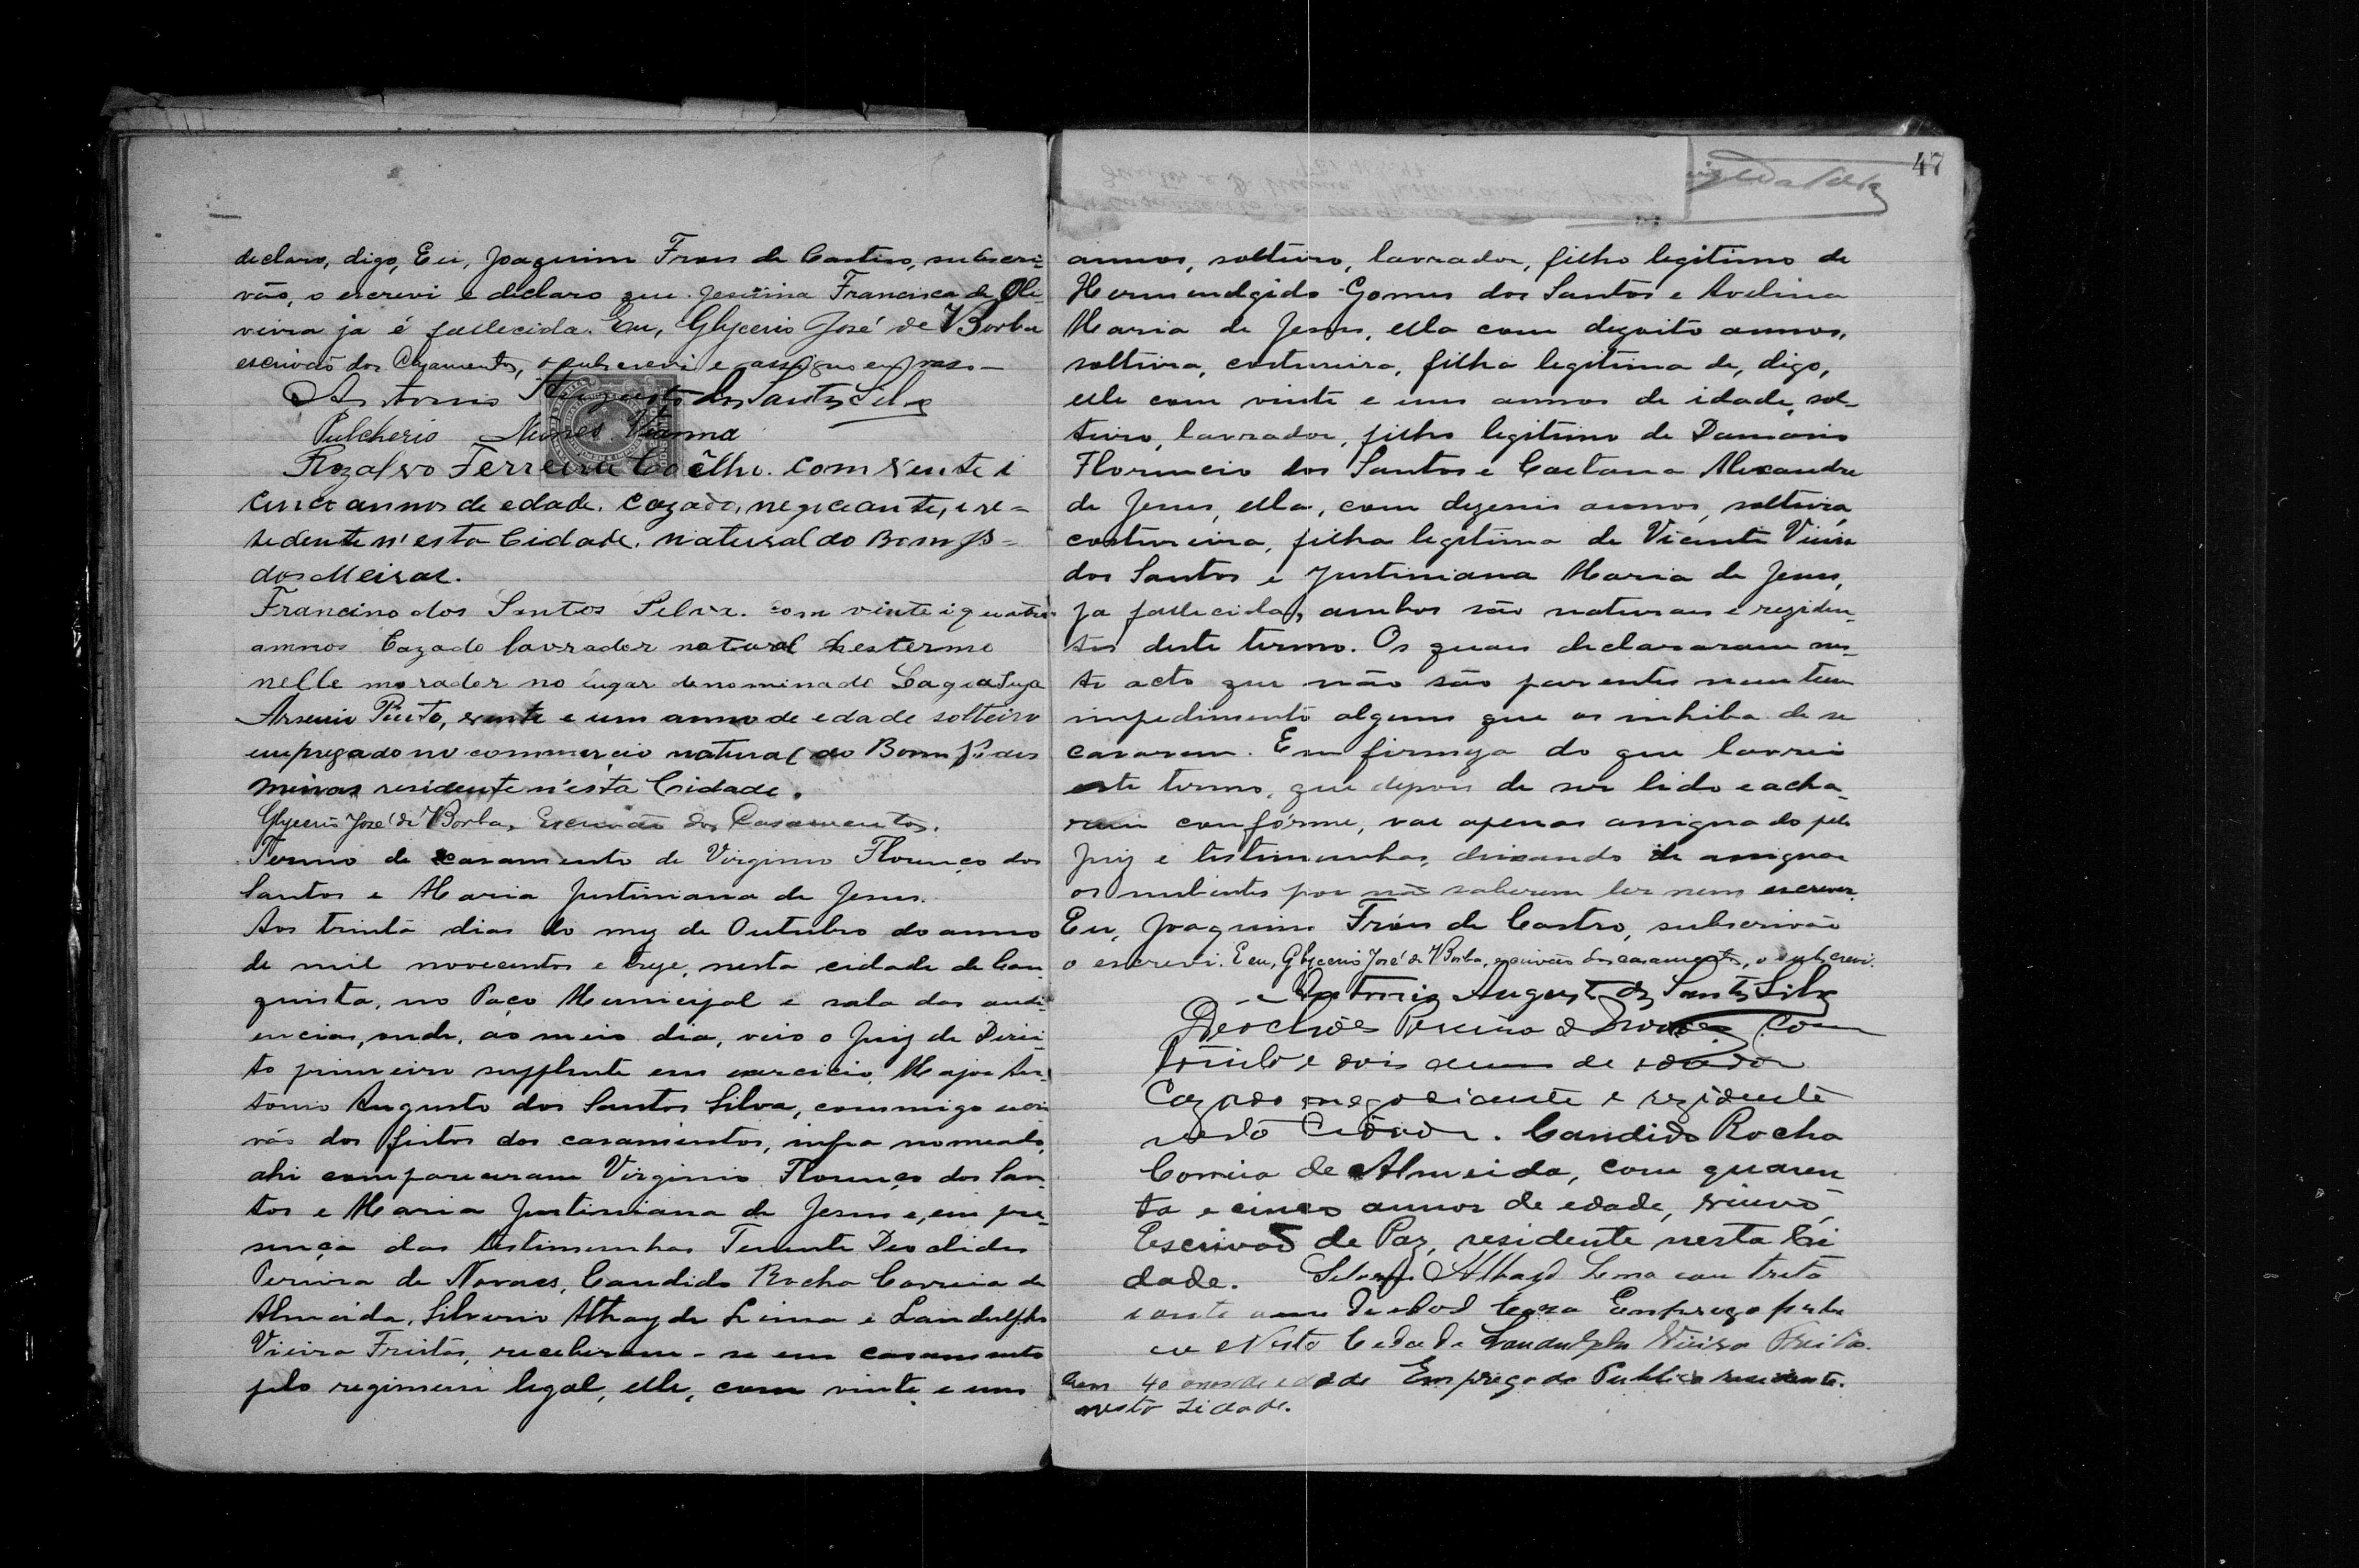 declaro, digo, Eu, Joaquim Fróes de Castro, subscri-
vão, o escrevi e declaro que Jesuina Francisca de Oli-
veira ja é fallecida. Eu, Glycerio José de Borba
escrivão dos Casamentos, o subscrevi e assigno em raso
Antonio Augusto dos Santos Silva
Pulcherio Nunes Vianna
Rozalvo Ferreira Coêlho. com vente i
cinco annos de edade. Cazado, negociante, i re-
sedente n'esta Cidade. natural do Bom Js=
dos Meiras.
Francino dos Santos Silva. com vinte i quatro
annos Cazado lavrador natural desterme
nelle morador no lugar denominado Lagoa
Arsenio Pinto, vente e um anno de edade solteiro
empregado no commercio natural do Bom Js. dos
meiras residente n'esta Cidade.
Glycerio José de Borba, Escrivão dos Casamentos.
Termo de casamento de Virginio Florenço dos
Santos e Maria Justiniana de Jesus.
Aos trinta dias do mez de Outubro do anno
de mil novecentos e treze, nesta cidade de Con-
quista, no Paço Municipal e sala das audi-
encias, onde, ao meio dia, veio o Juiz de Direi-
to primeiro supplente em exercicio, Major An-
tonio Augusto dos Santos Silva, commigo escri-
vão dos feitos dos casamentos, infra nomeado,
ahi compareceram Virginio Florenço dos San-
tos e Maria Justiniana de Jesus e, em pre-
sença das testimunhas Tenente Deoclides
Pereira de Novaes, Candido Rocha Correia de
Almeida, Silverio Athayde Lima e Landulpho
Vieira Freitas, receberam-se em casamento
pelo regimem legal, elle, com vinte e um
47
annos, solteiro, lavrador, filho legitimo de
Hermendgido Gomes dos Santos e Avelina
Maria de Jesus, ella com dezoito annos,
solteira, costureira, filha legitima de, digo,
elle com vinte e um annos de idade, sol-
teiro, lavrador, filho legitimo de Damasio
Florencio dos Santos e Caetana Alexandre
de Jesus, ella, com dezenis annos, solteira,
costureira, filha legitima de Vicente Vieira
dos Santos e Justiniana Maria de Jesus,
ja fallecida, ambos são naturaes e reziden-
tes deste termo. Os quaes declararam nes-
te acto que não são parentes nem tem
impedimento algum que os inhiba de se
casarem. Em firmeza do que lavrei
este termo, que depois de ser lido e acha-
rem confórme, vae apenas assignado pelo
Juiz e testimunhas, deixando de assignar
os nubentes por não saberem ler nem escrever.
Eu, Joaquim Fróes de Castro, subscrivão
o escrevi. Eu, Glycerio José de Borba, escrivão dos casamentos, o subscrevi.
Antonio Augusto dos Santos Silva
Deoclides Pereira de Novaes, com
trinta e dois annos de edade
Cazado negociante e rezidente
nesta Cidade. Candido Rocha
Correia de Almeida, com quaren
ta e cinco annos de edade, viuvo,
Escrivão de Paz, residente nesta Ci
dade. Silverio Athayd Lima com treta
annos
Nesta Cedade Landulpho Vieira Freitas.
Com 40 anos de edade Empregado Publico residente.
nesta sidade.